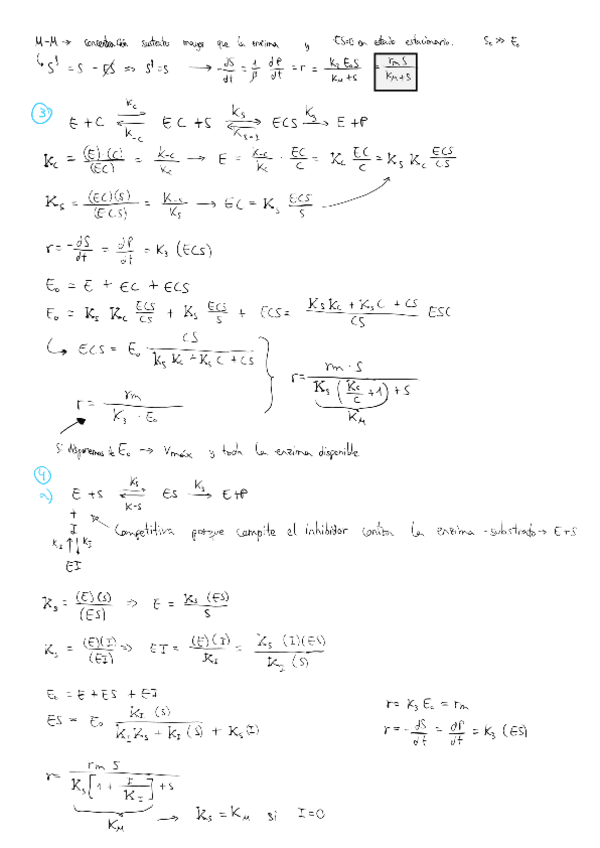 M-M → concentración sustrato mayor que la enzima y ES=E en estado estacionario. S₀ >> E₀
↳ S' = S - ES ⇒ S' = S → -dS/dt = 1/β dP/dt = r = K₃ E₀ S / (K_M + S) = rm S / (K_M + S)
③ E + C ⇌ (K_c / K_-c) EC + S ⇌ (K_s) ECS →(K₃) E + P
K_c = (E)·(C) / (EC) = K_-c / K_c → E = K_-c / K_c · EC/C = K_c EC/C = K_s K_c ECS/CS
K_s = (EC)(S) / (ECS) = K_-s / K_s → EC = K_s ECS/S
r = -dS/dt = dP/dt = K₃ (ECS)
E₀ = E + EC + ECS
E₀ = K_s K_c ECS/CS + K_s ECS/S + ECS = (K_s K_c + K_s C + CS) / CS ESC
↳ ECS = E₀ CS / (K_s K_c + K_s C + CS)
r = rm · S / (K_s (K_c/C + 1) + S)
K_M
r = rm / (K₃ · E₀)
Si disponemos de E₀ → Vmáx y toda la enzima disponible
④
a) E + S ⇌ (K_s / K-s) ES →(K₃) E+P
+
I Competitiva porque compite el inhibidor contra la enzima-substrato → E+S
EI
K_s = (E)(S) / (ES) ⇒ E = K_s (ES) / S
K_s = (E)(I) / (EI) ⇒ EI = (E)(I) / K_I = K_s (I)(ES) / K_I (S)
E₀ = E + ES + EI
r = K₃ E₀ = rm
ES = E₀ K_I (S) / (K_I K_s + K_I (S) + K_s (I))
r = -dS/dt = dP/dt = K₃ (ES)
r = rm S / (K_s [1 + I/K_I] + S)
K_M → K_s = K_M si I=0